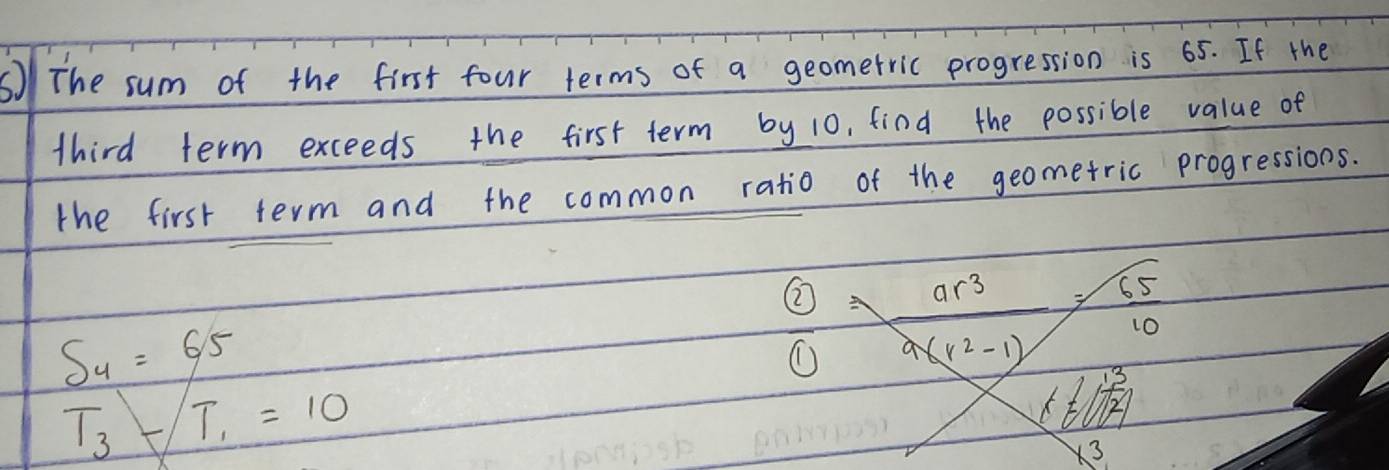 6) The sum of the first four terms of a geometric progression is 65. If the
third term exceeds the first term by 10, find the possible value of
the first term and the common ratio of the geometric progressions.
② = ar³ = 65
① a(r²-1) 10
S₄ = 65
T₃ - T₁ = 10